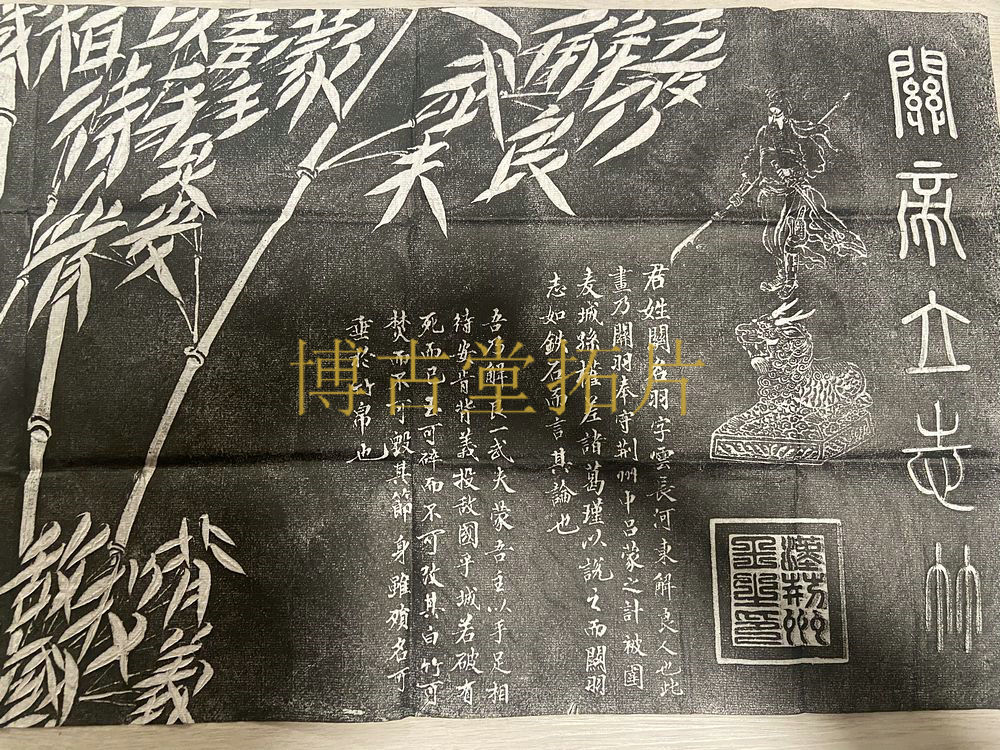 關帝立志竹
漢荊州
君姓關名羽字雲長河東解良人也此
畫乃關羽奉守荊州中呂蒙之計被圍
麦城孫權差諸葛瑾以説之而關羽
志如鉄石而言其論也
吾乃解良一武夫蒙吾主以手足相
待安肯背義投敵國乎城若破有
死而已玉可碎而不可改其白竹可
焚而不可毀其節身雖殞名可
垂於竹帛也
吾乃解良
一武夫
蒙吾主以
手足相待
安肯
背義
投敵國
博古堂拓片